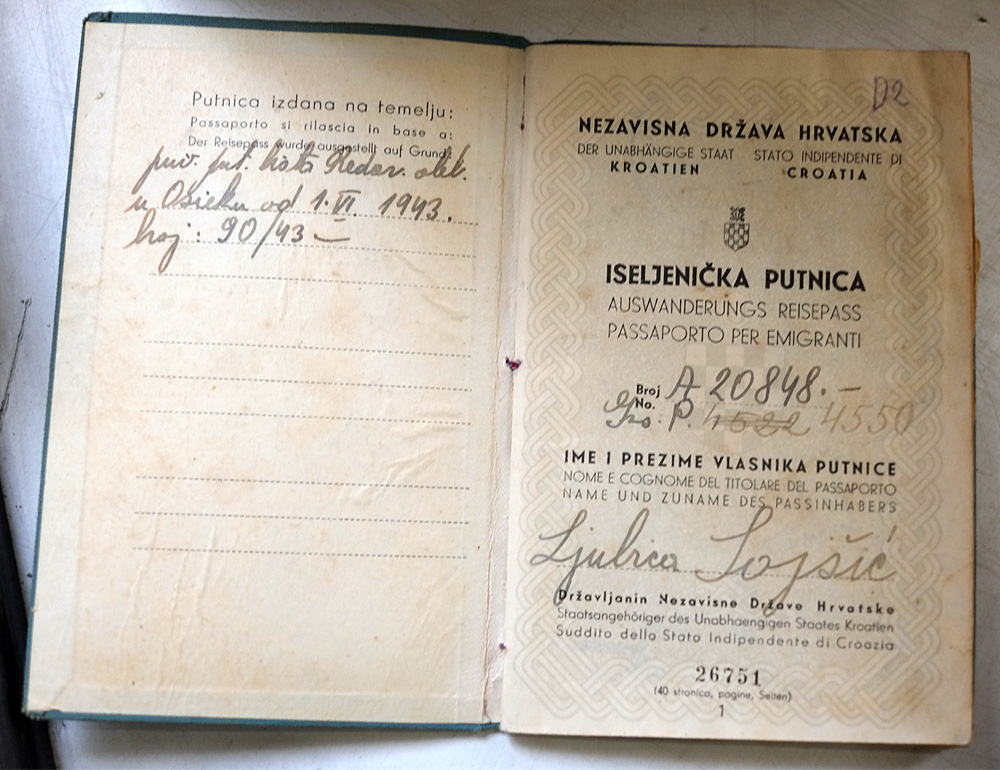 Putnica izdana na temelju:
Passaporto si rilascia in base a:
Der Reisepass wurde ausgestellt auf Grund:
put. kota Redar. obl.
u Osieku od 1. VI. 1943.
broj: 90/43 –
D2
NEZAVISNA DRŽAVA HRVATSKA
DER UNABHÄNGIGE STAAT STATO INDIPENDENTE DI
KROATIEN CROATIA
ISELJENIČKA PUTNICA
AUSWANDERUNGS REISEPASS
PASSAPORTO PER EMIGRANTI
Broj A 20848. –
No.
P. 4522 4550
IME I PREZIME VLASNIKA PUTNICE
NOME E COGNOME DEL TITOLARE DEL PASSAPORTO
NAME UND ZUNAME DES PASSINHABERS
Ljubica Sojšić
Državljanin Nezavisne Države Hrvatske
Staatsangehöriger des Unabhaengigen Staates Kroatien
Suddito dello Stato Indipendente di Croazia
26751
(40 stranica, pagine, Seiten)
1